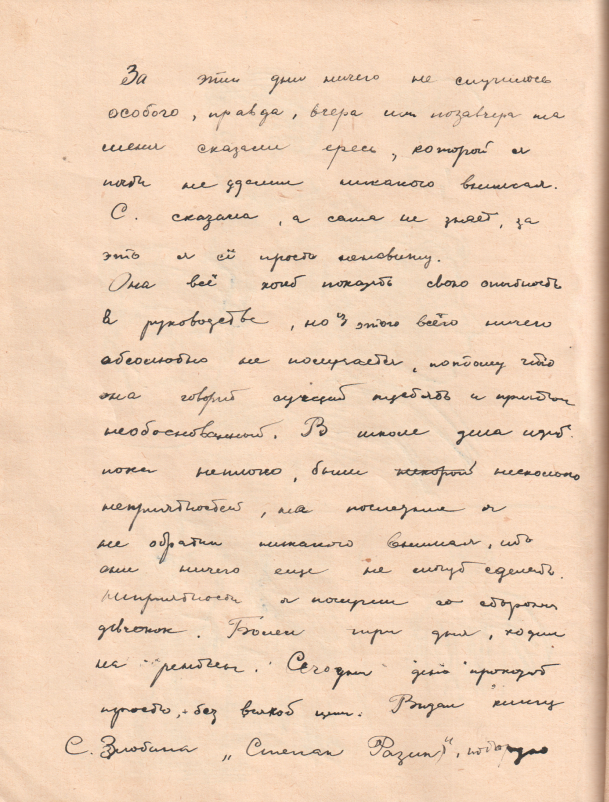 За эти дни ничего не случилось
особого, правда, вчера или позавчера на
меня сказали ересь, которой я
почти не уделил никакого внимая.
С. сказала, а сама не знает, за
это я её просто ненавижу.
Она всё хочет показать свою опытность
в руководстве, но из этого всего ничего
абсолютно не получается, потому что
она говорит сущий и притом
необоснованный. В школе дела идут
пока неплохо, были несколько
неприятностей, на последние я
не обратил никакого внимая, ибо
они ничего еще не могут сделать.
Неприятности я получил со стороны
девчонок. Болел три дня, ходил
на рентген. Сегодня день проходит
просто, без всякой цели. Видел книгу
С. Злобина „Степан Разин",